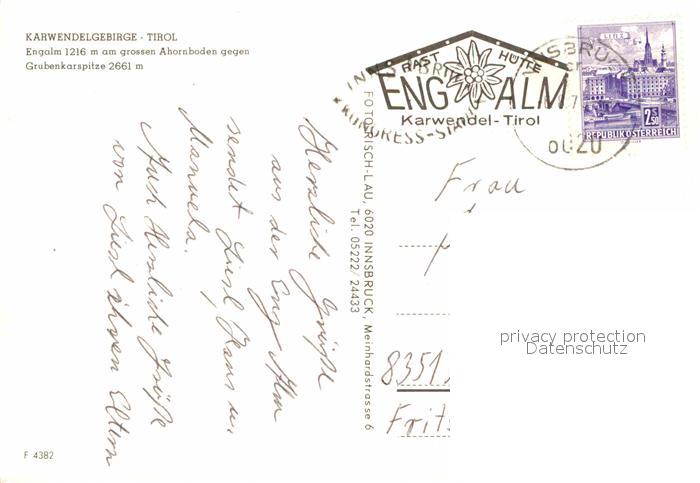 KARWENDELGEBIRGE - TIROL
Engalm 1216 m am grossen Ahornboden gegen
Grubenkarspitze 2661 m
RAST HÜTTE
ENG ALM
Karwendel - Tirol
INNSBRUCK
KONGRESS-STADT
INNSBRUCK
6020
LINZ
2.50
REPUBLIK ÖSTERREICH
Herzliche Grüße
aus der Eng Alm
sendet Liesl Hans u.
Manuela.
Auch Herzliche Grüße
von Liesl ihren Eltern
FOTO FRISCH-LAU, 6020 INNSBRUCK, Meinhardstrasse 6
Tel. 05222/24433
Frau
8351
Frit
privacy protection
Datenschutz
F 4382